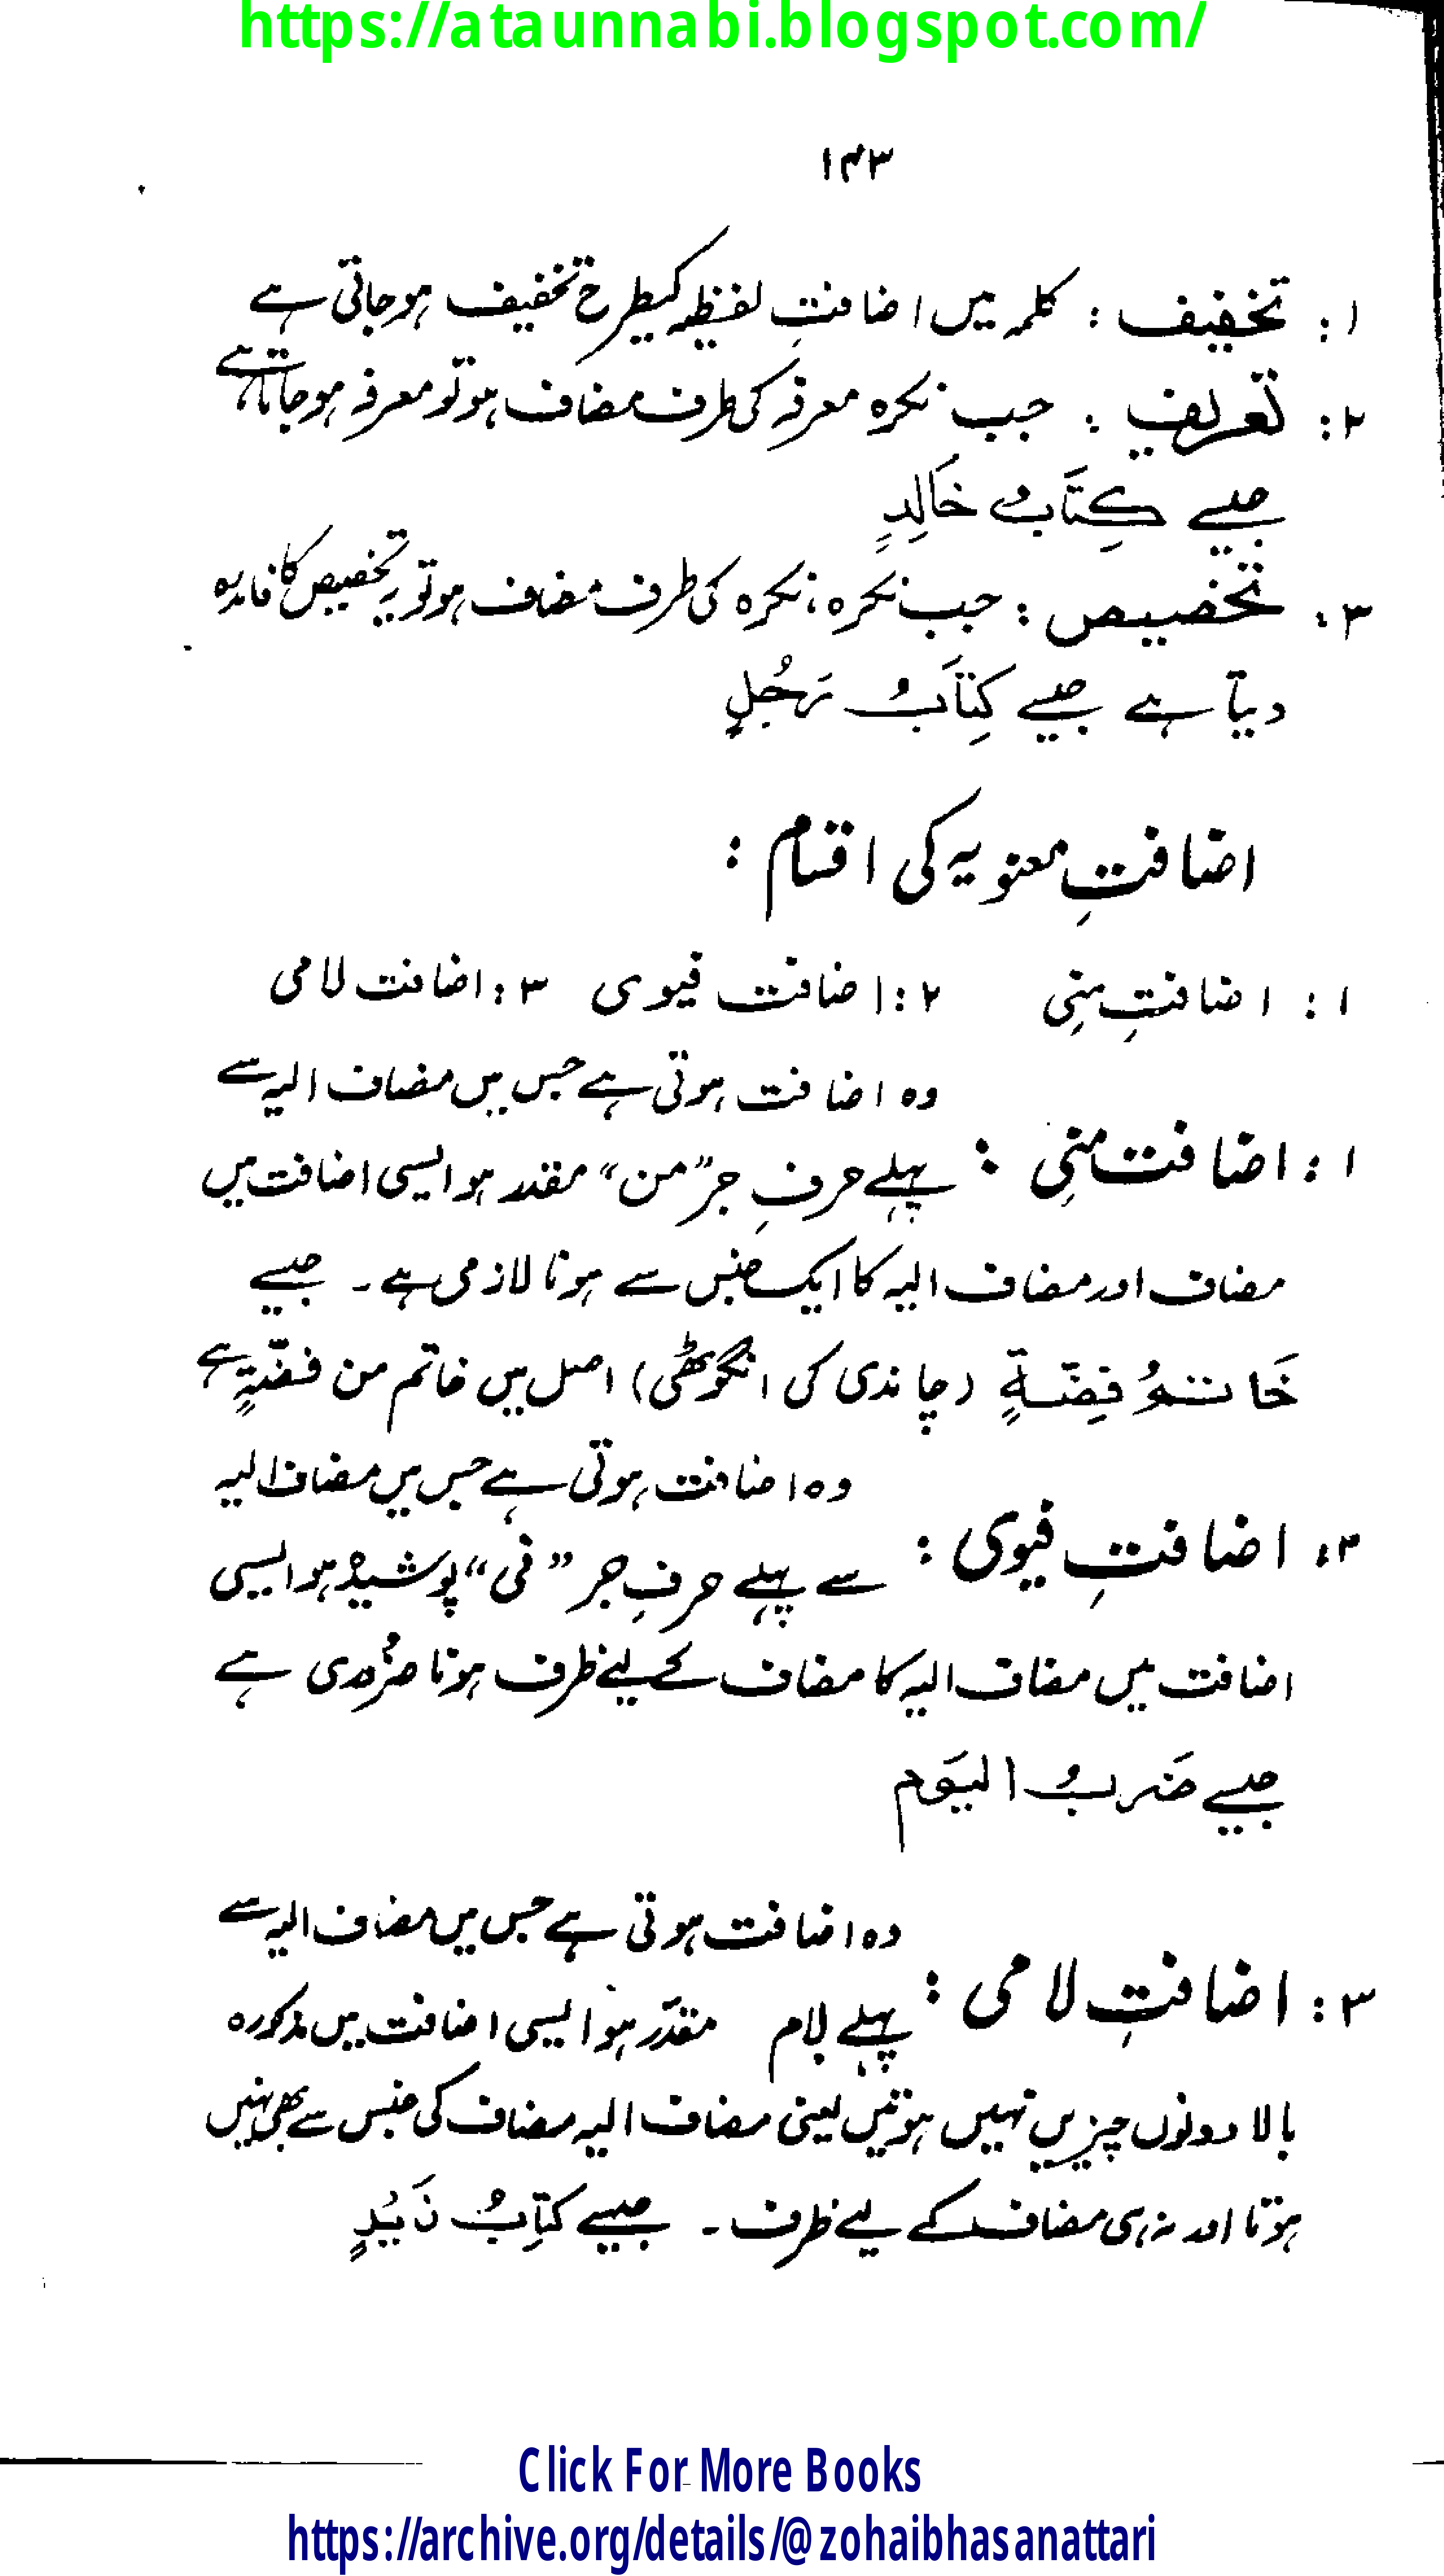 https://ataunnabi.blogspot.com/
۱۴۳
۱: تخفیف : کلمہ میں اضافتِ لفظیہ کیطرح تخفیف ہوجاتی ہے
۲: تعریف : جب نکرہ معرفہ کی طرف مضاف ہو تو معرفہ ہوجاتا ہے
جیسے كِتَابُ خَالِدٍ
۳: تخصیص : جب نکرہ، نکرہ کی طرف مضاف ہو تو یہ تخصیص کا فائدہ
دیتا ہے جیسے كِتَابُ رَجُلٍ
اضافتِ معنویہ کی اقسام :
۱: اضافتِ مِنِی ۲: اضافت فیوی ۳: اضافت لامی
وہ اضافت ہوتی ہے جس میں مضاف الیہ سے
۱: اضافت مِنِی : پہلے حرفِ جر ”من“ مقدر ہو ایسی اضافت میں
مضاف اور مضاف الیہ کا ایک جنس سے ہونا لازمی ہے۔ جیسے
خَاتَمُ فِضَّةٍ (چاندی کی انگوٹھی) اصل میں خاتم من فضّةٍ ہے
وہ اضافت ہوتی ہے جس میں مضاف الیہ
۲: اضافتِ فیوی : سے پہلے حرفِ جر ”فی“ پوشیدہ ہو ایسی
اضافت میں مضاف الیہ کا مضاف کے لیئے ظرف ہونا ضرُوری ہے
جیسے ضَربُ الیَوم
وہ اضافت ہوتی ہے جس میں مضاف الیہ سے
۳: اضافتِ لامی : پہلے لام مقدّر ہو ایسی اضافت میں مذکورہ
بالا دونوں چیزیں نہیں ہوتیں یعنی مضاف الیہ مضاف کی جنس سے بھی نہیں
ہوتا اور نہ ہی مضاف کے لیے ظرف۔ جیسے كِتَابُ زَیْدٍ
Click For More Books
https://archive.org/details/@zohaibhasanattari